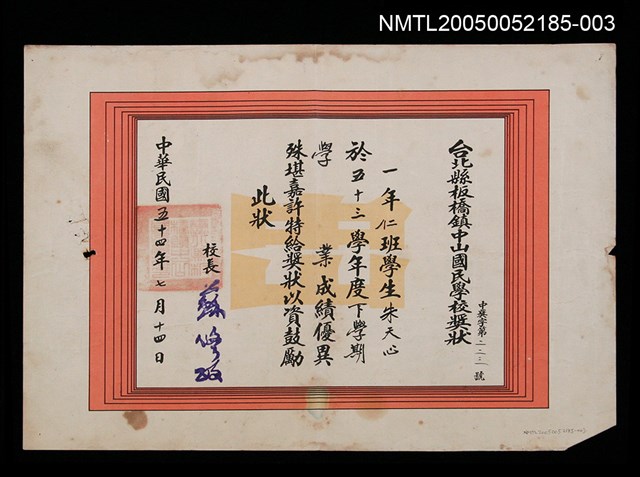 NMTL20050052185-003
台北縣板橋鎮中山國民學校奬狀
中奬字第一二三一號
一年仁班學生朱天心
於五十三學年度下學期
學業成績優異
殊堪嘉許特給奬狀以資鼓勵
此狀
校長
中華民國五十四年七月十四日